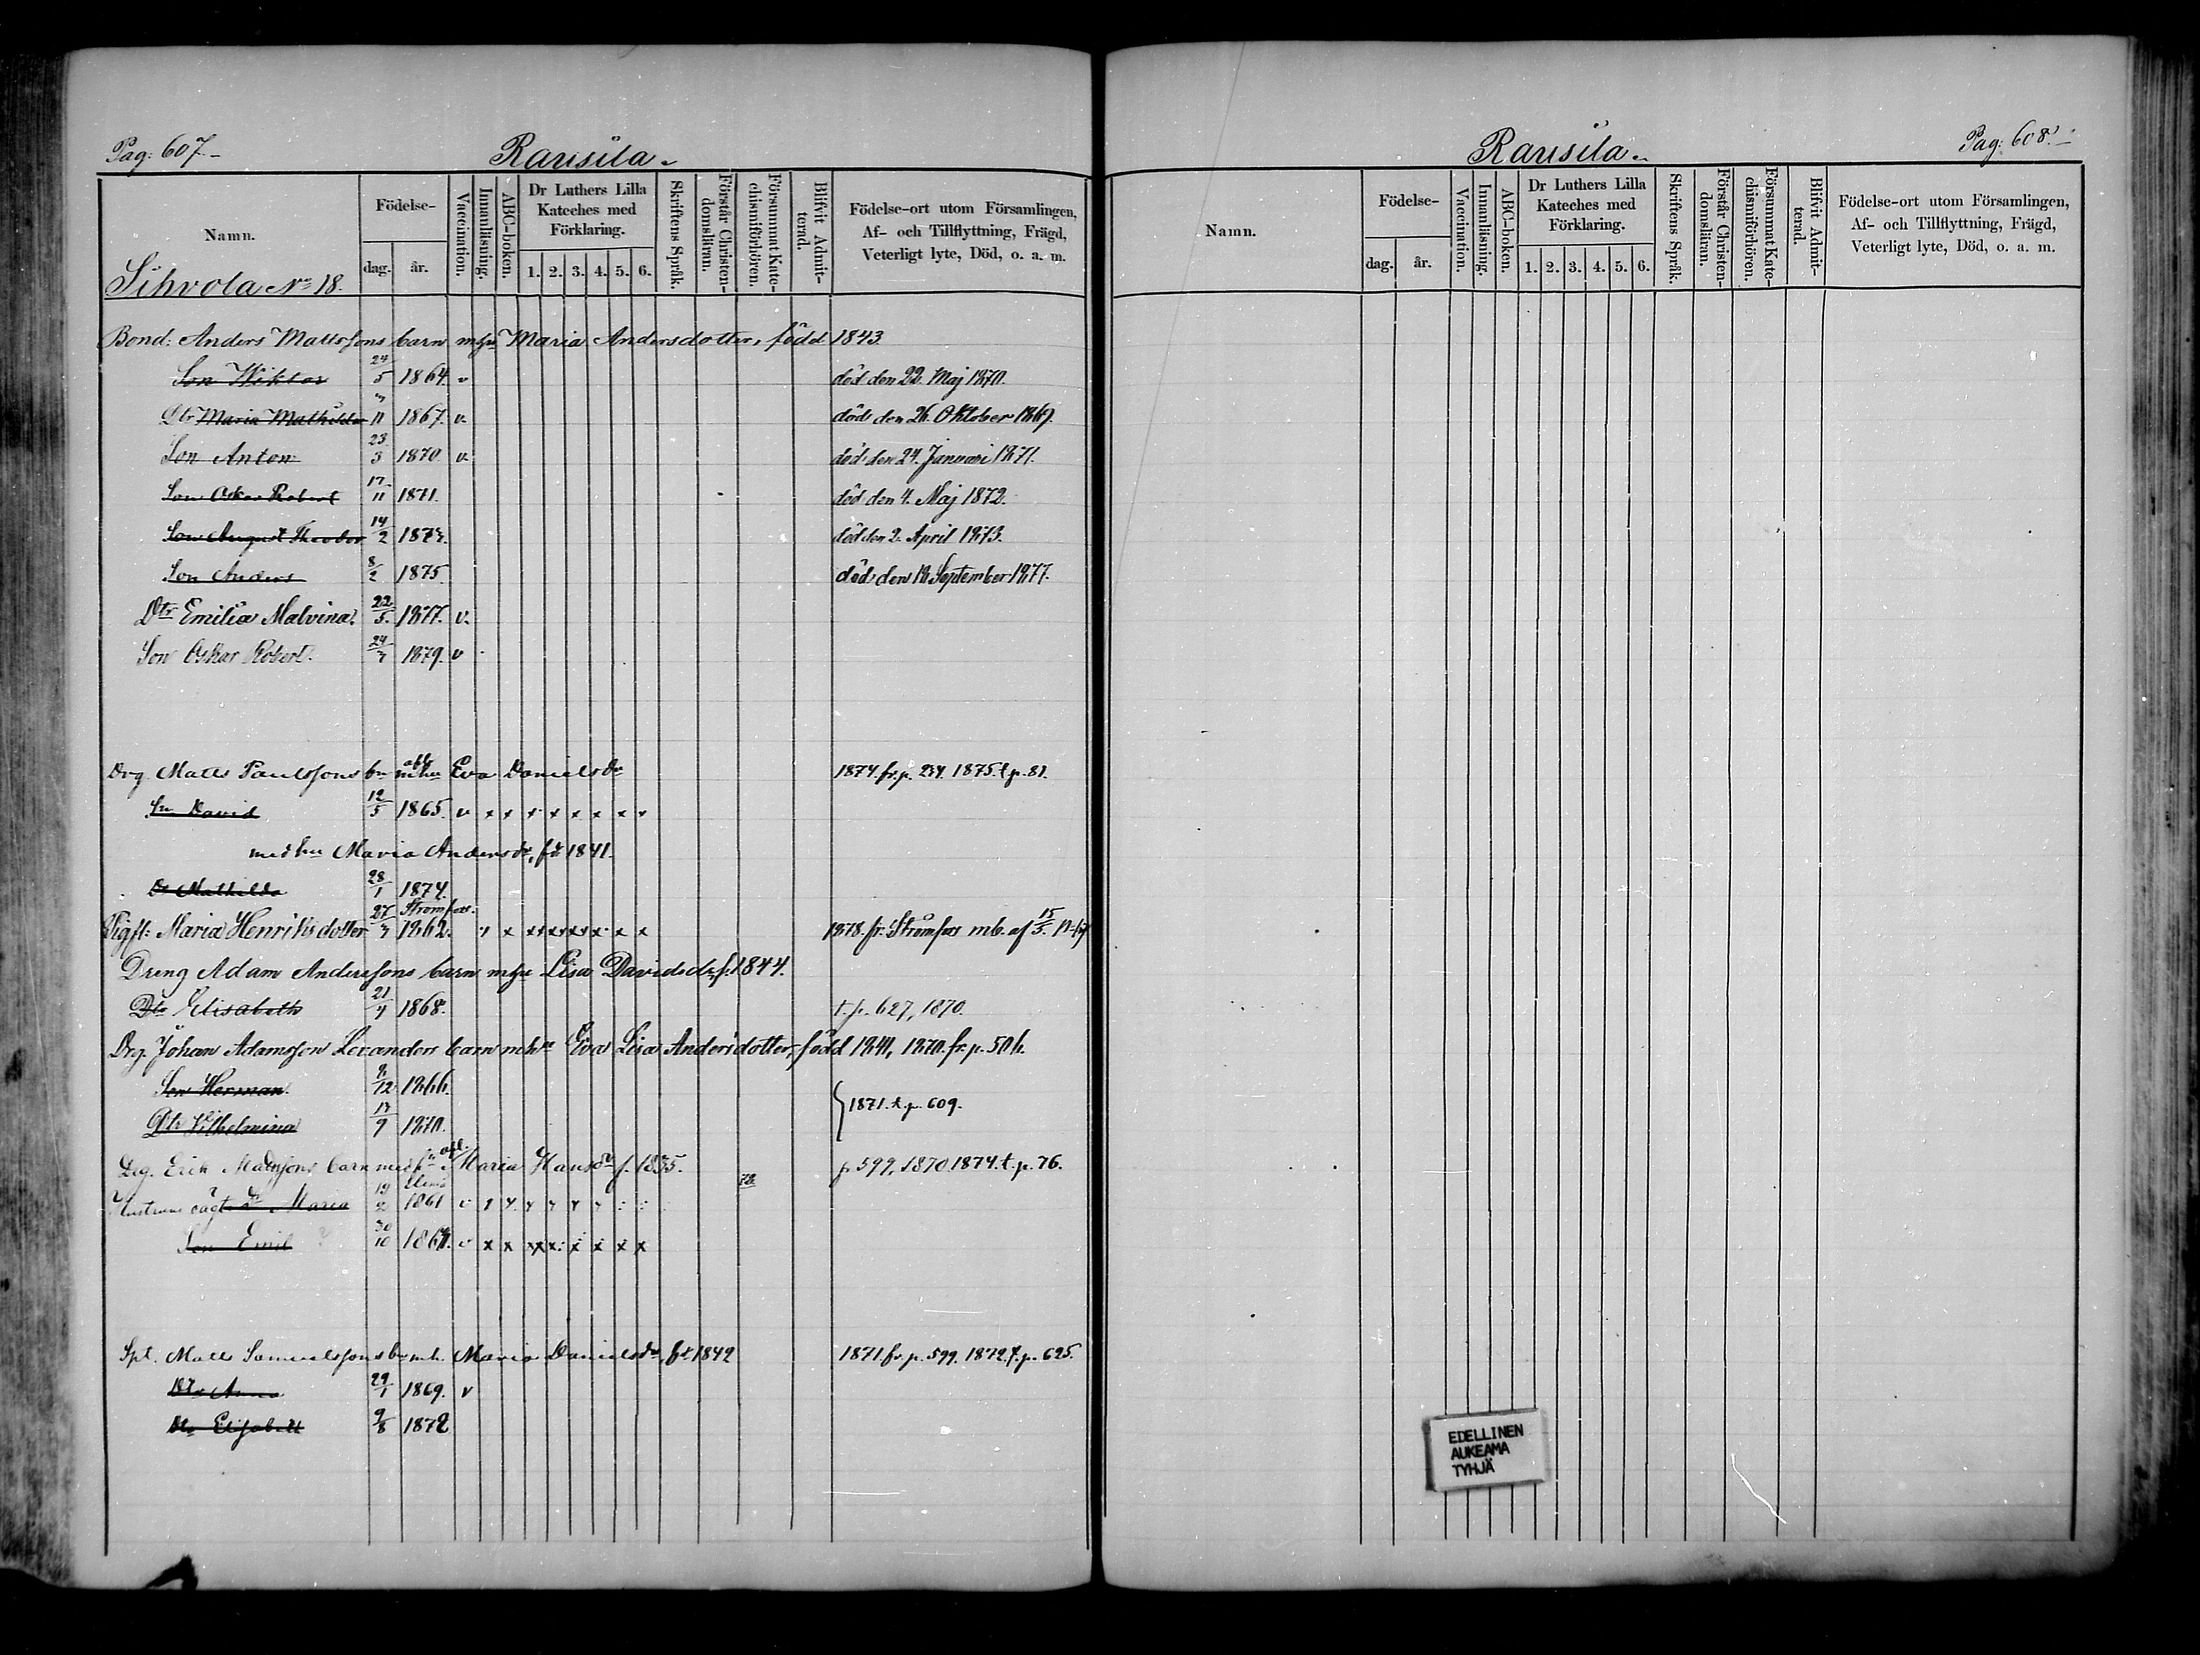 Pag: 607.
Rausila.
Namn.
Födelse-
dag.
år.
Vaccination.
Innanläsning.
ABC-boken.
Dr Luthers Lilla
Kateches med
Förklaring.
1. 2. 3. 4. 5. 6.
Skriftens Språk.
Förstår Christen-
domsläran.
Försummat Kate-
chismiförhören.
Blifvit Admit-
terad.
Födelse-ort utom Församlingen,
Af- och Tillflyttning, Frägd,
Veterligt lyte, Död, o. a. m.
Sihvola No 18.
Bond: Anders Mattssons barn mhu Maria Andersdotter, född 1843.
Son Wiktor 24/5 1864. v död den 22. Maj 1870.
Dtr Maria Mathilda 11 1867. v. död den 26. Oktober 1869.
Son Anton 23/3 1870 v. död den 24. Januari 1871.
Son Oskar Robert 17/11 1871. död den 4. Maj 1872.
Son August Theodor 14/2 1873. död den 2. April 1873.
Son Anders 8/2 1875. död den 18. September 1877.
Dtr Emilia Malvina. 22/5. 1877. v.
Son Oskar Robert. 24/3 1879. v
Drg. Matts Paulssons bn m afl. hu Eva Danielsdr 1874. fr. p. 234. 1875. t. p. 81.
Sn David 12/5 1865. v x x x x x x x x
med hu Maria Andersdr, fd 1841.
Dr Mathilda 28/1 1874.
Strömfors.
Pigfl: Maria Henriksdotter 27/3 1862. x x x x x x x x 1878. fr. Strömfors mb. af 15/5.
Dreng Adam Anderssons barn mhu Lisa Davidsdr, f. 1844.
Dtr Elisabeth 21/4 1868. t. p. 627, 1870.
Drg. Johan Adamsson Levanders barn mhu Eva Lisa Andersdotter, född 1841, 1870. fr. p. 506.
Son Herman. 8/12 1866.
1871. t. p. 609.
Dtr Vilhelmina 17/9 1870.
Drg. Erik Mattssons barn med afl. hu Maria Hansdr f. 1835. p. 599, 1870 1874. t. p. 76.
Elimä
Hustruns oägta Dr Maria 19/2 1861 v
Son Emil 30/10 1867. v x x x x x x x x
Spt. Matts Samuelssons bn mh. Maria Danielsdr, fd 1842 1871 fr. p. 599. 1872 t. p. 625.
Dtr Anna 29/1 1869. v
Dtr Elisabeth 9/8 1872
Rausila.
Pag: 608.
Namn.
Födelse-
dag.
år.
Vaccination.
Innanläsning.
ABC-boken.
Dr Luthers Lilla
Kateches med
Förklaring.
1. 2. 3. 4. 5. 6.
Skriftens Språk.
Förstår Christen-
domsläran.
Försummat Kate-
chismiförhören.
Blifvit Admit-
terad.
Födelse-ort utom Församlingen,
Af- och Tillflyttning, Frägd,
Veterligt lyte, Död, o. a. m.
EDELLINEN
AUKEAMA
TYHJÄ